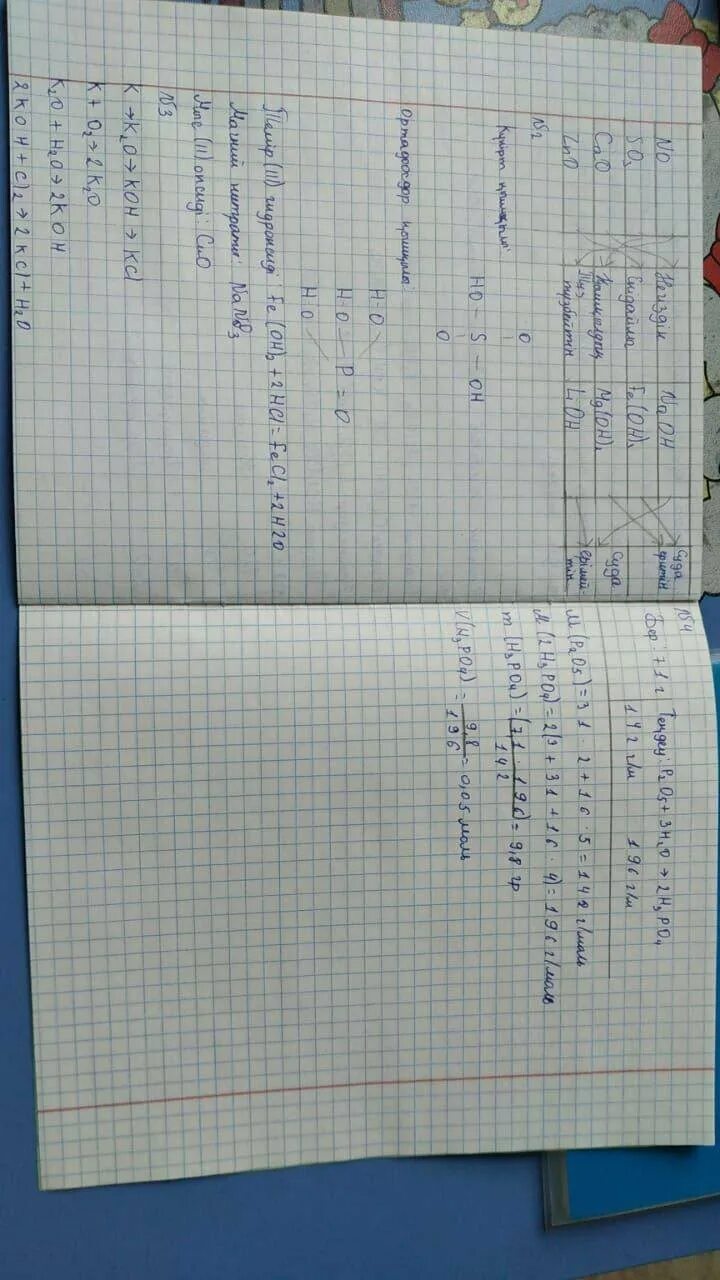 NO Негіздік NaOH Суда еритін
SO₃ Сидайлы Fe(OH)₂ Суда
CaO Mg(OH)₂ ерімей-
ZnO түзбейтін LiOH тін
№2
Күкірт қышқылы:
O
HO - S - OH
O
Ортафосфор қышқылы:
H-O
H-O - P = O
H O
Темір (III) гидроксиді: Fe(OH)₂ + 2HCl = FeCl₂ + 2H2O
Магний нитраты: NaNO₃
Мыс (II) оксиді: CuO
№3
K → K₂O → KOH → KCl
K + O₂ → 2K₂O
K₂O + H₂O → 2KOH
2KOH + Cl₂ → 2KCl + H₂O
№4
Бер: 7,1 г Теңдеу: P₂O₅ + 3H₂O → 2H₃PO₄
142 г/м 196 г/м
M(P₂O₅) = 31 · 2 + 16 · 5 = 142 г/моль
M(2H₃PO₄) = 2(3 + 31 + 16 · 4) = 196 г/моль
m(H₃PO₄) = (7,1 · 196) / 142 = 9,8 гр
V(H₃PO₄) = 9,8 / 196 = 0,05 моль